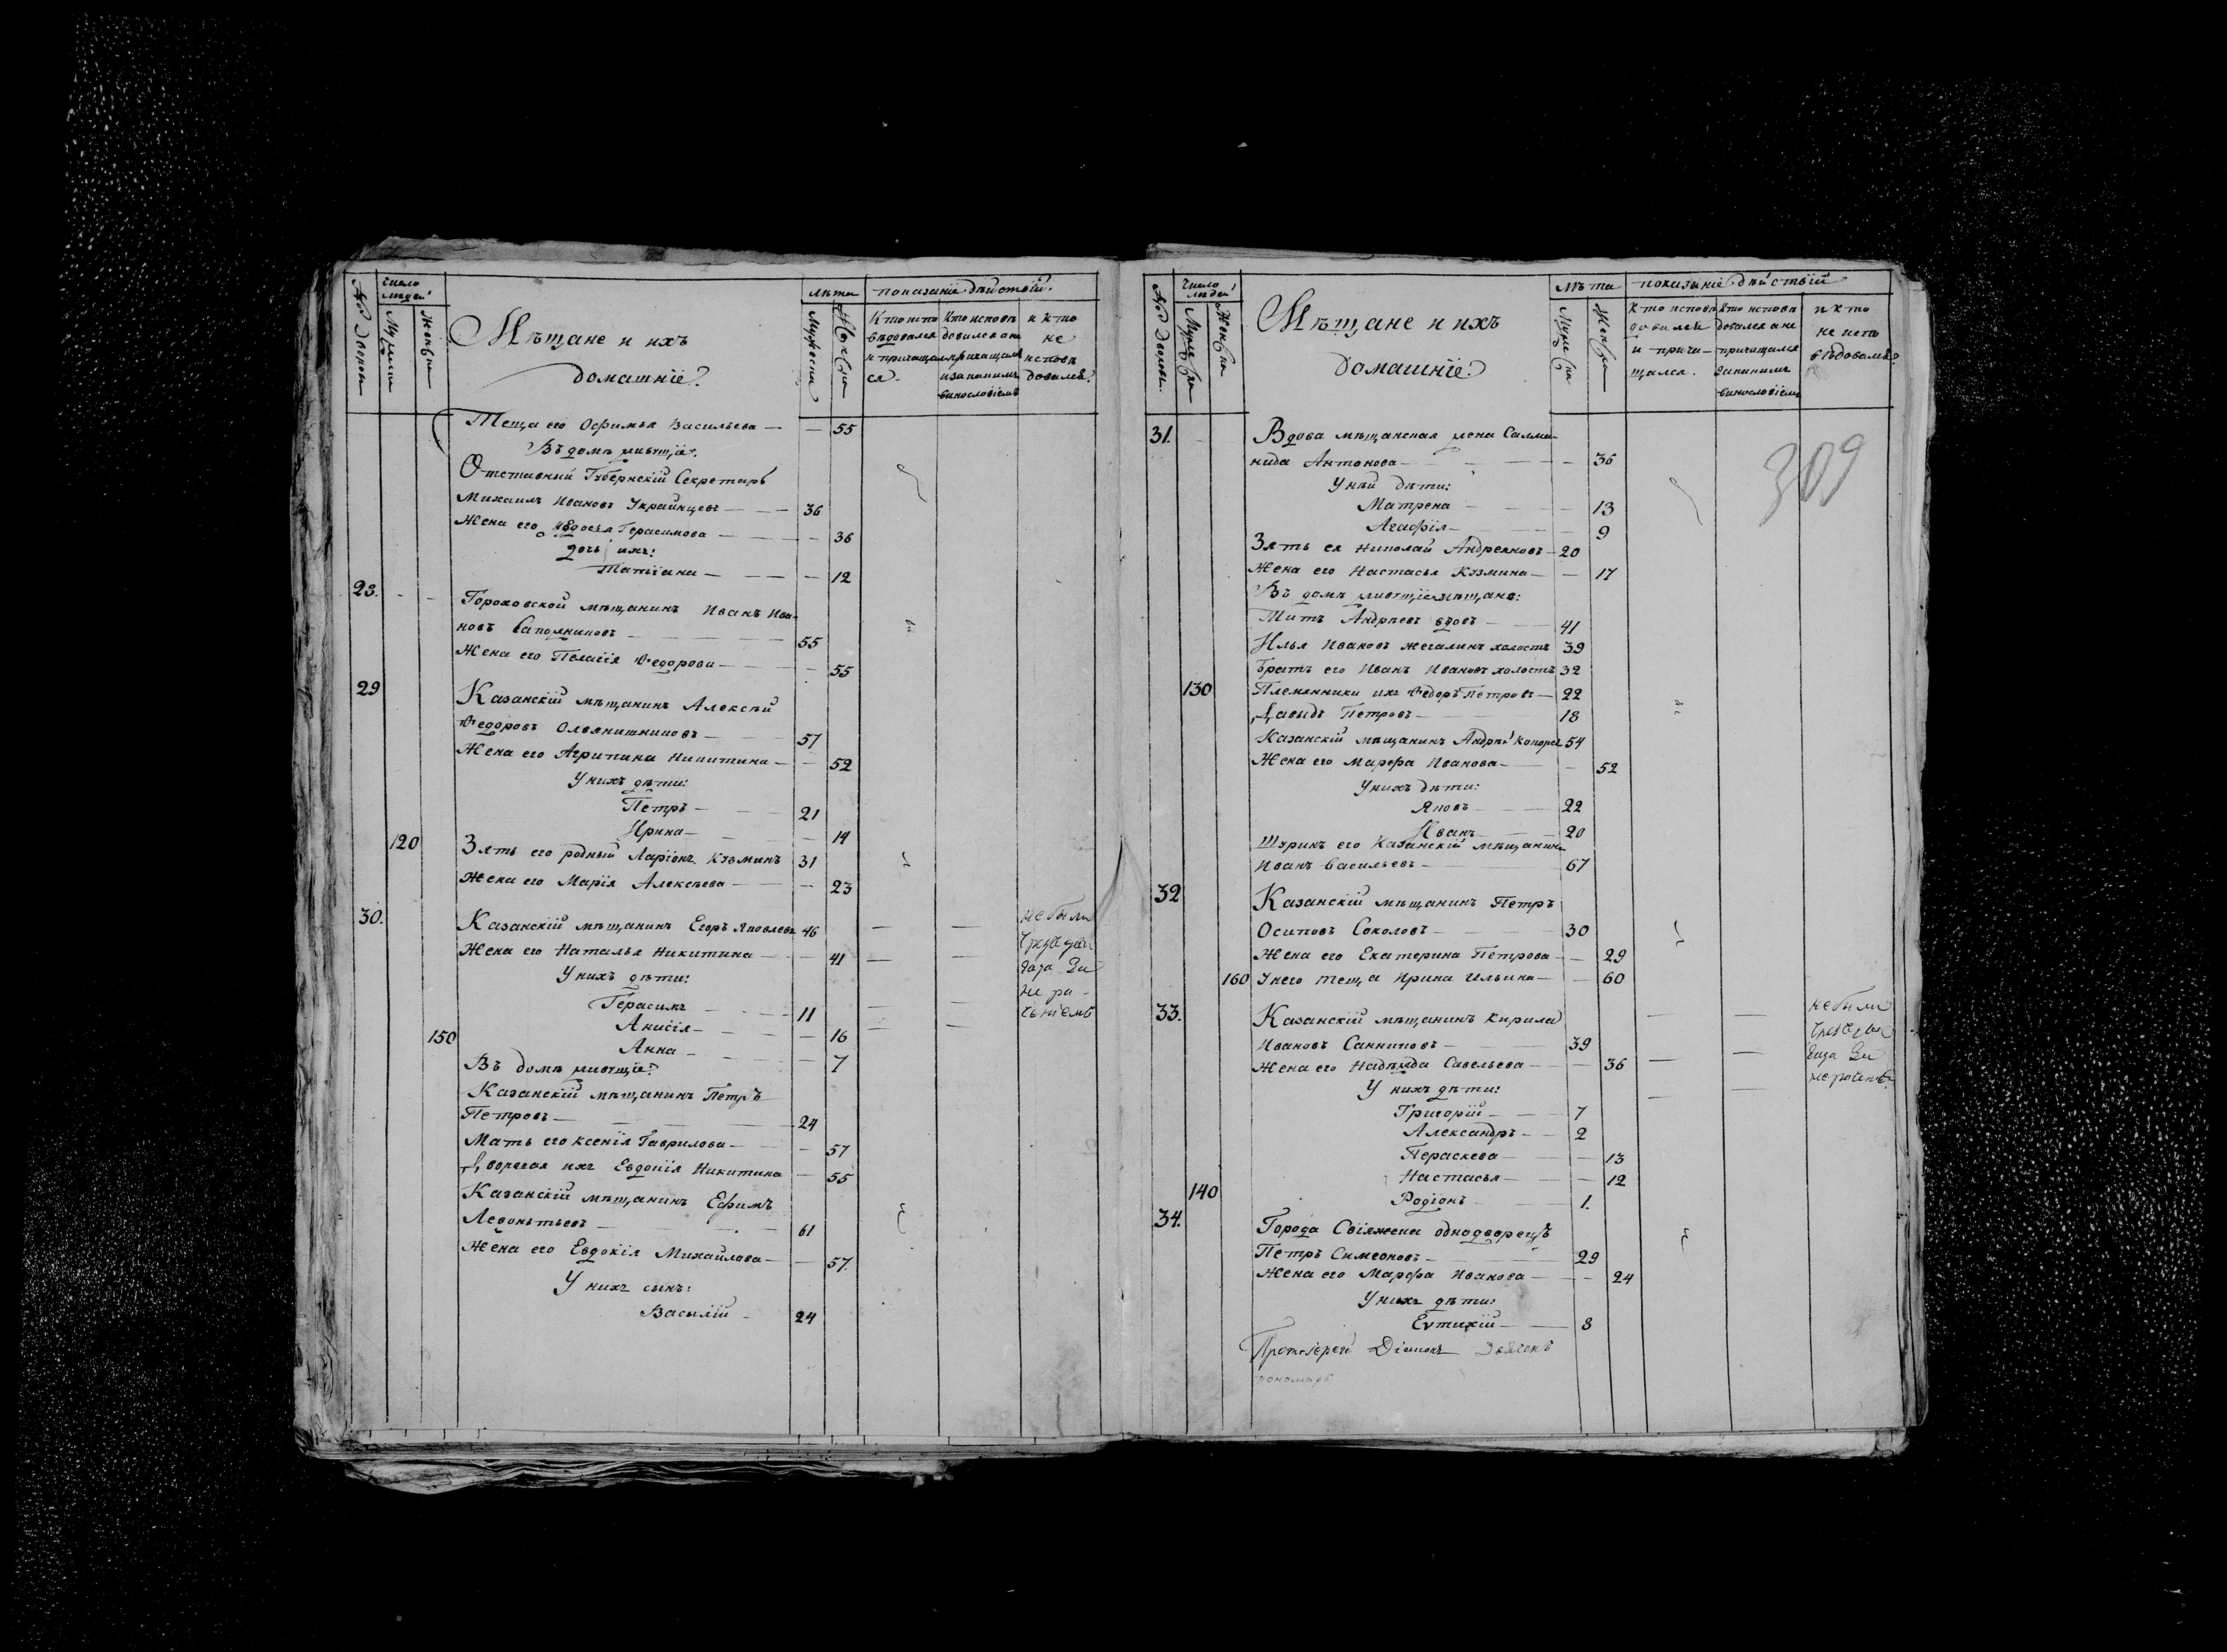 № дворовъ
Число людей
Мужска
Женска
Мѣщане и ихъ
домашніе.
лѣта
Мужеска
Женска
показаніе дѣйствій.
Кто испо
вѣдовался
и причащал
ся.
Кто исповѣ
довался а не
причащался
и за какимъ
винословіемъ
и кто
не
исповѣ
довался.
Теща его Офимья Васильева — — 55
Въ домѣ живущіе:
Отставный Губернскій Секретарь
Михаилъ Ивановъ Украинцевъ — — 36
Жена его Авдосья Герасимова — — 36
дочь ихъ:
Татіана — — — 12
28.
Гороховской мѣщанинъ Иванъ Ива-
новъ Сапожниковъ — 55
Жена его Пелагія Ѳедорова — — 55
29
Казанскій мѣщанинъ Алексѣй
Ѳедоровъ Оловянишниковъ — 57
Жена его Агрипина Никитина — — 52
У нихъ дѣти:
Петръ — 21
Ирина — — 14
120 Зять его родный Ларіонъ Кузминъ 31
Жена его Марія Алексѣева — — 23
30. Казанскій мѣщанинъ Егоръ Яковлевъ 46 — — не были
Жена его Наталья Никитина — — 41 — —
У нихъ дѣти:
Герасимъ — 11 — — не ра-
Анисія — — 16 — — чѣніемъ
150 Анна — — 7
Въ домѣ живущіе:
Казанскій мѣщанинъ Петръ
Петровъ — 24
Мать его Ксенія Гаврилова — — 57
Евдокія Никитина — 55
Казанскій мѣщанинъ Ефимъ
Леонтьевъ — 61
Жена его Евдокія Михайлова — — 57.
У нихъ сынъ:
Василій — 24
№ дворовъ.
Число людей
Мужска
Женска
Мѣщане и ихъ
домашніе.
лѣта
Мужеска
Женска
показаніе дѣйствій
Кто исповѣ
довался
и прича-
щался.
Кто исповѣ
довался а не
причащался
за какимъ
винословіемъ
и кто
не испо
вѣдовался.
309
31. Вдова мѣщанская жена Салма-
нида Антонова — — 36
У ней дѣти:
Матрена — — 13
Агафія — 9
Зять ея Николай Андреяновъ — 20
Жена его Настасья Кузмина — — 17
Въ домѣ живущіе мѣщане:
Титъ Андреевъ вдовъ — 41
Илья Ивановъ Жегалинъ холостъ 39
Братъ его Иванъ Ивановъ холостъ 32
130 Племянники ихъ Ѳедоръ Петровъ — 22
Давыдъ Петровъ — 18
Казанскій мѣщанинъ Андрей 54
Жена его Марфа Иванова — — 52
У нихъ дѣти:
Яковъ — 22
Иванъ — 20
Шуринъ его Казанскій мѣщанинъ
Иванъ Васильевъ — 67
32 Казанскій мѣщанинъ Петръ
Осиповъ Соколовъ — 30
Жена его Екатерина Петрова — — 29
160 У него теща Ирина Ильина — — 60
33. Казанскій мѣщанинъ Кирила — — не были
Ивановъ Санниковъ — 39
Жена его Надежда Савельева — — 36 — —
У нихъ дѣти: — —
Григорій — 7
Александръ — 2
Пераскева — — 13
Настасья — — 12
140 Родіонъ — 1.
34. Города Свіяжска однодворецъ
Петръ Симеоновъ — 29
Жена его Марфа Иванова — — 24
У нихъ дѣти:
Евтихій — 8
Протоіерей Діаконъ
пономарь